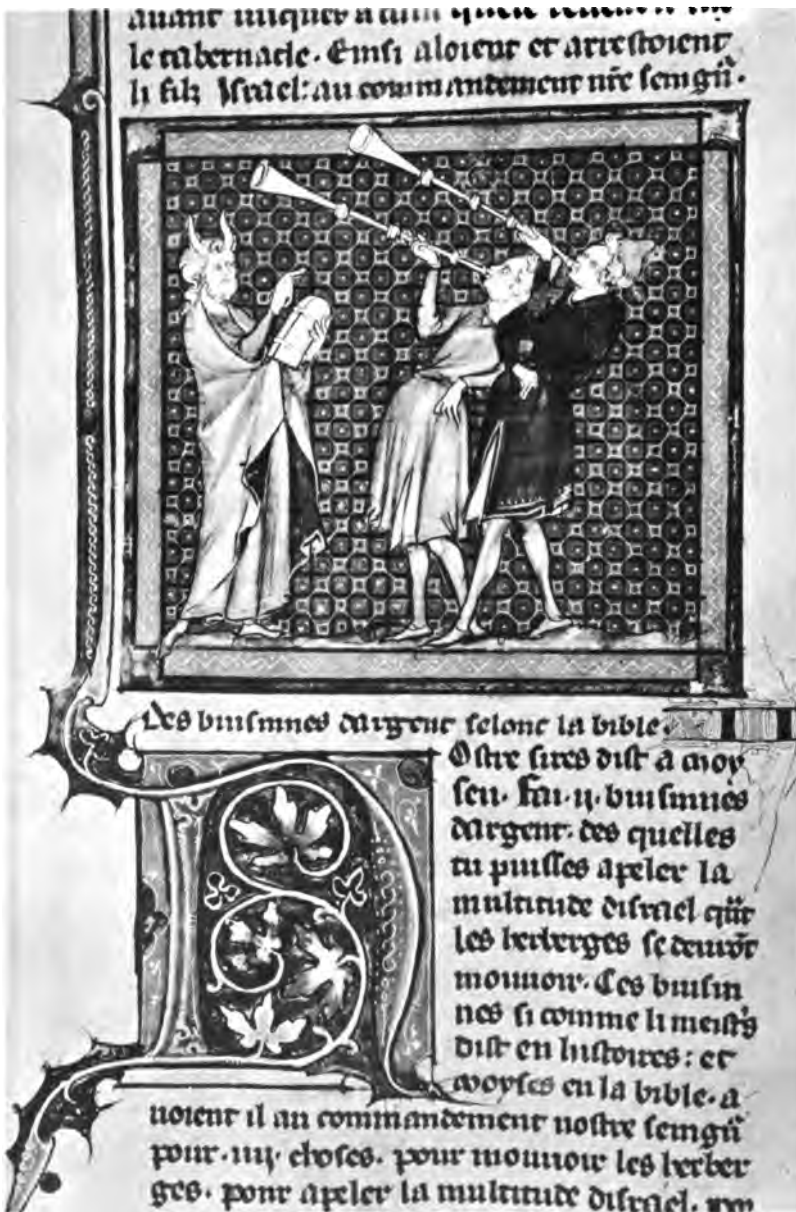 auant
le tabernacle. Ensi aloient et arrestoient
li filz Israel: au commandement nr̄e seingn̄.
Des buisinnes dargent selonc la bible.
Nostre sires dist a moy
sen. Fai .ij. buisinnes
dargent. des quelles
tu puisses apeler la
multitude disrael qn̄t
les herberges se deurōt
mouuoir. Ces buisin
nes si comme li meistr̄s
dist en histoires: et
moyses en la bible. a
uoient il au commandement nostre seingn̄
pour .iiij. choses. pour mouuoir les herber
ges. pour apeler la multitude disrael.